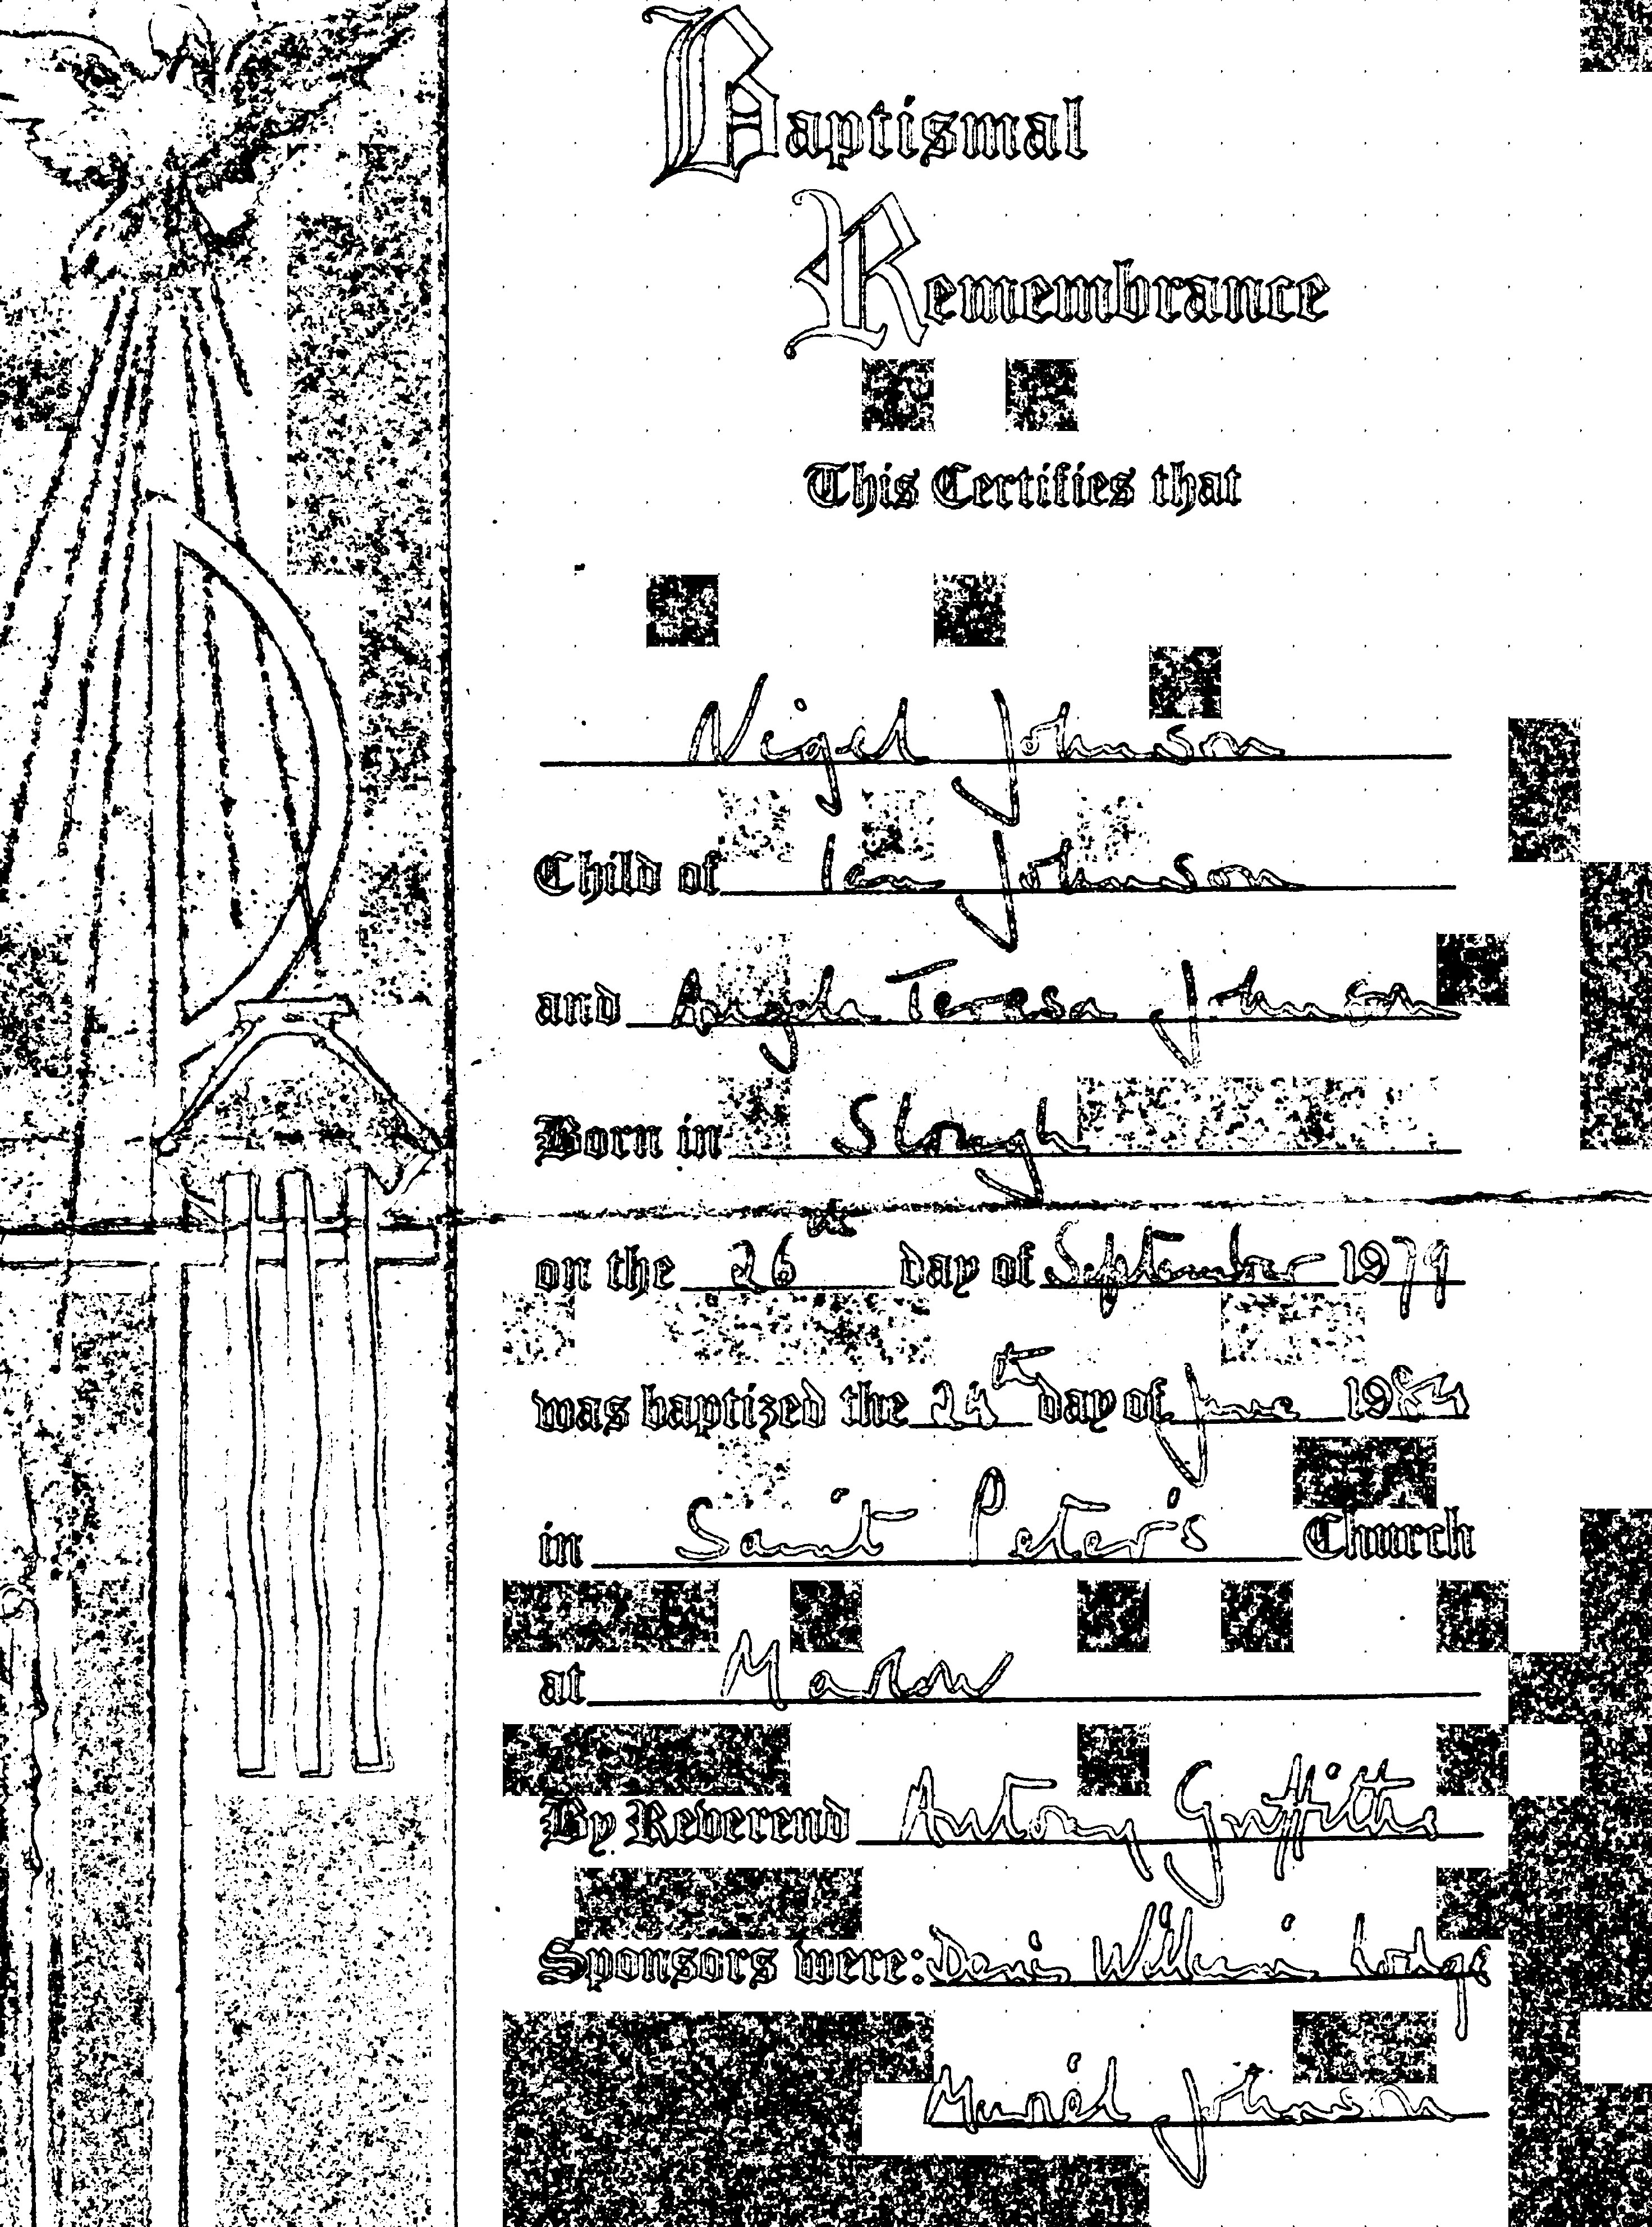 Baptismal
Remembrance
This Certifies that
Nigel Johnson
Child of Ian Johnson
and Angela Teresa Johnson
Born in Slough
on the 26th day of September 1979
was baptized the 24th day of June 1984
in Saint Peter's Church
at Marlow
By Reverend Antony Griffiths
Sponsors were: Denis William
Muriel Johnson